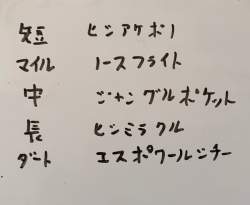 短 ヒシアケボノ
マイル ノースフライト
中 ジャングルポケット
長 ヒシミラクル
ダート エスポワールシチー